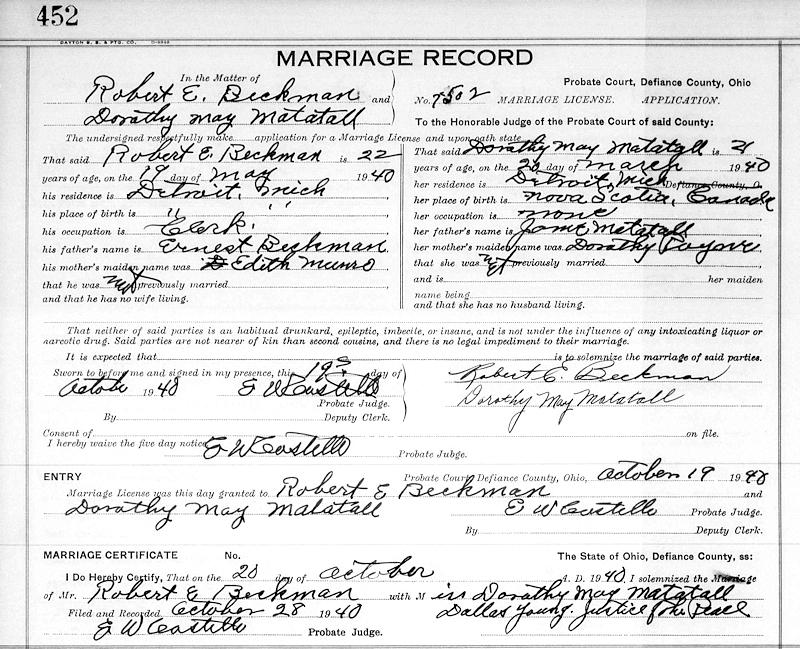 452
DAYTON B. B. & PTG. CO.
MARRIAGE RECORD
In the Matter of
Robert E. Beckman and
Dorathy May Matatall
Probate Court, Defiance County, Ohio
No. 7502 MARRIAGE LICENSE. APPLICATION.
To the Honorable Judge of the Probate Court of said County:
The undersigned respectfully make application for a Marriage License and upon oath state
That said Robert E. Beckman is 22
years of age, on the 19 day of May 1940
his residence is Detroit, Mich
his place of birth is " "
his occupation is Clerk.
his father's name is Ernest Beckman
his mother's maiden name was Edith Munro
that he was not previously married
and that he has no wife living.
That said Dorathy May Matatall is 21
years of age, on the 20 day of March 1940
her residence is Detroit, Mich Defiance County, O.
her place of birth is Nova Scotia, Canada
her occupation is none
her father's name is Matatall
her mother's maiden name was Dorothy
that she was not previously married
and is her maiden
name being
and that she has no husband living.
That neither of said parties is an habitual drunkard, epileptic, imbecile, or insane, and is not under the influence of any intoxicating liquor or
narcotic drug. Said parties are not nearer of kin than second cousins, and there is no legal impediment to their marriage.
It is expected that is to solemnize the marriage of said parties.
Sworn to before me and signed in my presence, this 19 day of
October 1940 E W Costello
Probate Judge.
By Deputy Clerk.
Robert E. Beckman
Dorathy May Matatall
Consent of on file.
I hereby waive the five day notice E W Costello Probate Jubge.
ENTRY
Probate Court, Defiance County, Ohio, October 19 1940
Marriage License was this day granted to Robert E Beckman and
Dorathy May Matatall E W Costello Probate Judge.
By Deputy Clerk.
MARRIAGE CERTIFICATE No. The State of Ohio, Defiance County, ss:
I Do Hereby Certify, That on the 20 day of October A. D. 1940, I solemnized the Marriage
of Mr. Robert E Beckman with Miss Dorathy May Matatall
Filed and Recorded October 28 1940 Dallas Young. Justice of the Peace
E W Costello Probate Judge.